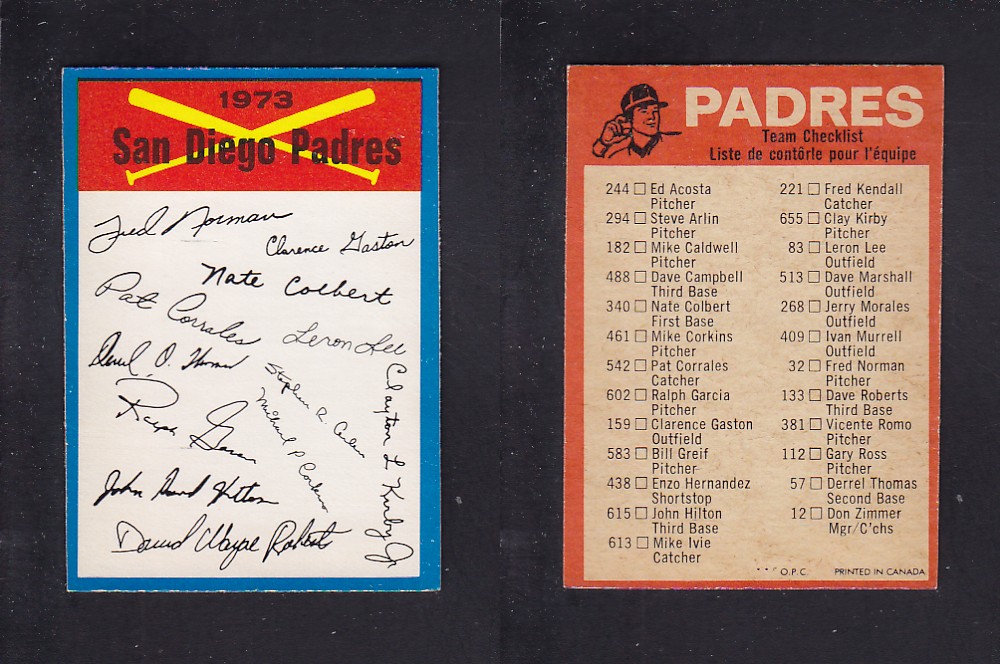 1973
San Diego Padres
Fred Norman
Clarence Gaston
Nate Colbert
Pat Corrales
Leron Lee
Derrel O. Thomas
Stephen R. Arlin
Michael P Corkins
Clayton L Kirby Jr
Ralph Garcia
John David Hilton
David Wayne Roberts
PADRES
Team Checklist
Liste de contôrle pour l'équipe
244 Ed Acosta
Pitcher
294 Steve Arlin
Pitcher
182 Mike Caldwell
Pitcher
488 Dave Campbell
Third Base
340 Nate Colbert
First Base
461 Mike Corkins
Pitcher
542 Pat Corrales
Catcher
602 Ralph Garcia
Pitcher
159 Clarence Gaston
Outfield
583 Bill Greif
Pitcher
438 Enzo Hernandez
Shortstop
615 John Hilton
Third Base
613 Mike Ivie
Catcher
221 Fred Kendall
Catcher
655 Clay Kirby
Pitcher
83 Leron Lee
Outfield
513 Dave Marshall
Outfield
268 Jerry Morales
Outfield
409 Ivan Murrell
Outfield
32 Fred Norman
Pitcher
133 Dave Roberts
Third Base
381 Vicente Romo
Pitcher
112 Gary Ross
Pitcher
57 Derrel Thomas
Second Base
12 Don Zimmer
Mgr/C'chs
O.P.C. PRINTED IN CANADA